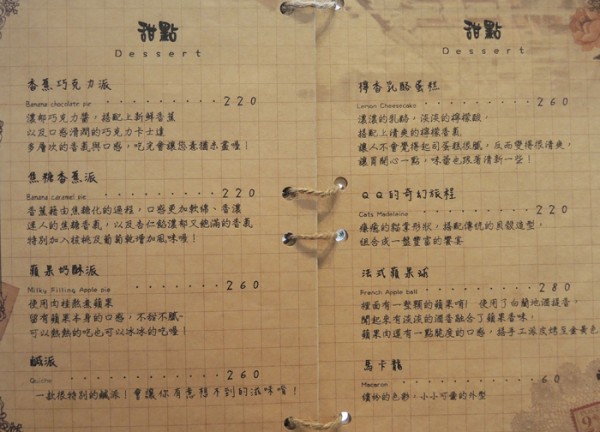 甜點
Dessert
香蕉巧克力派
Banana chocolate pie ・・・・・・・・・・ 220
濃郁巧克力醬，搭配上新鮮香蕉
以及口感滑潤的巧克力卡士達
多層次的香氣與口感，吃完會讓您意猶未盡喔！
焦糖香蕉派
Banana caramel pie ・・・・・・・・・・ 220
香蕉藉由焦糖化的過程，口感更加軟綿、香濃
迷人的焦糖香氣，以及杏仁餡濃郁又飽滿的香氣
特別加入核桃及葡萄乾增加風味喔！
蘋果奶酥派
Milky Filling Apple pie ・・・・・・・・ 260
使用肉桂熬煮蘋果
留有蘋果本身的口感，不甜不膩~
可以熱熱的吃也可以冰冰的吃喔！
鹹派
Quiche ・・・・・・・・・・・・ 260
一款很特別的鹹派！會讓你有意想不到的滋味唷！
甜點
Dessert
檸香乳酪蛋糕
Lemon Cheesecake ・・・・・・・・・・ 260
濃濃的乳酪，淡淡的檸檬酸，
搭配上清爽的檸檬香氣
讓人不會覺得起司蛋糕很膩，反而變得很清爽，
讓頁開心一點，味蕾也跟著清新一些！
QQ的奇幻旅程
Cats Madeleine ・・・・・・・・・・ 220
療癒的貓掌形狀，搭配傳統的貝殼造型，
組合成一盤豐富的饗宴
法式蘋果球
French Apple ball ・・・・・・・・・・ 280
裡面有一整顆的蘋果唷! 使用了白蘭地酒提香，
聞起來有淡淡的酒香融合了蘋果香味，
蘋果肉還有一點脆度的口感，搭手工派皮烤至金黃色
馬卡龍
Macaron ・・・・・・・・・・・・ 60
繽紛的色彩，小小可愛的外型